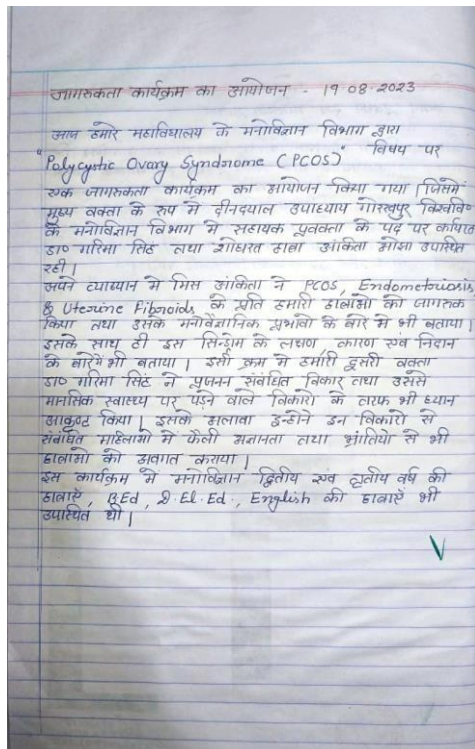 जागरूकता कार्यक्रम का आयोजन - 19.08.2023
आज हमारे महाविद्यालय के मनोविज्ञान विभाग द्वारा
"Polycystic Ovary Syndrome (PCOS)" विषय पर
एक जागरूकता कार्यक्रम का आयोजन किया गया। जिसमें
मुख्य वक्ता के रूप में दीनदयाल उपाध्याय गोरखपुर विश्ववि०
के मनोविज्ञान विभाग में सहायक प्रवक्ता के पद पर
डा० गरिमा सिंह तथा शोधरत छात्रा अंकिता ओझा उपस्थित
रही।
अपने व्याख्यान में मिस अंकिता ने PCOS, Endometriosis
& Uterine Fibroids के प्रति हमारी छात्राओं को जागरूक
किया तथा इसके मनोवैज्ञानिक प्रभावों के बारे में भी बताया।
इसके साथ ही इस सिन्ड्रोम के लक्षण कारण एवं निदान
के बारे में भी बताया। इसी क्रम में हमारी दूसरी वक्ता
डा० गरिमा सिंह ने प्रजनन संबंधित विकार तथा उससे
मानसिक स्वास्थ्य पर पड़ने वाले विकारों के तरफ भी ध्यान
आकृष्ट किया। इसके अलावा इन्होंने इन विकारों से
संबंधित महिलाओं में फैली अज्ञानता तथा भ्रांतियों से भी
छात्राओं को अवगत कराया।
इस कार्यक्रम में मनोविज्ञान द्वितीय एवं तृतीय वर्ष की
छात्राएँ, B.Ed, D.El.Ed., English की छात्राएँ भी
उपस्थित थी।